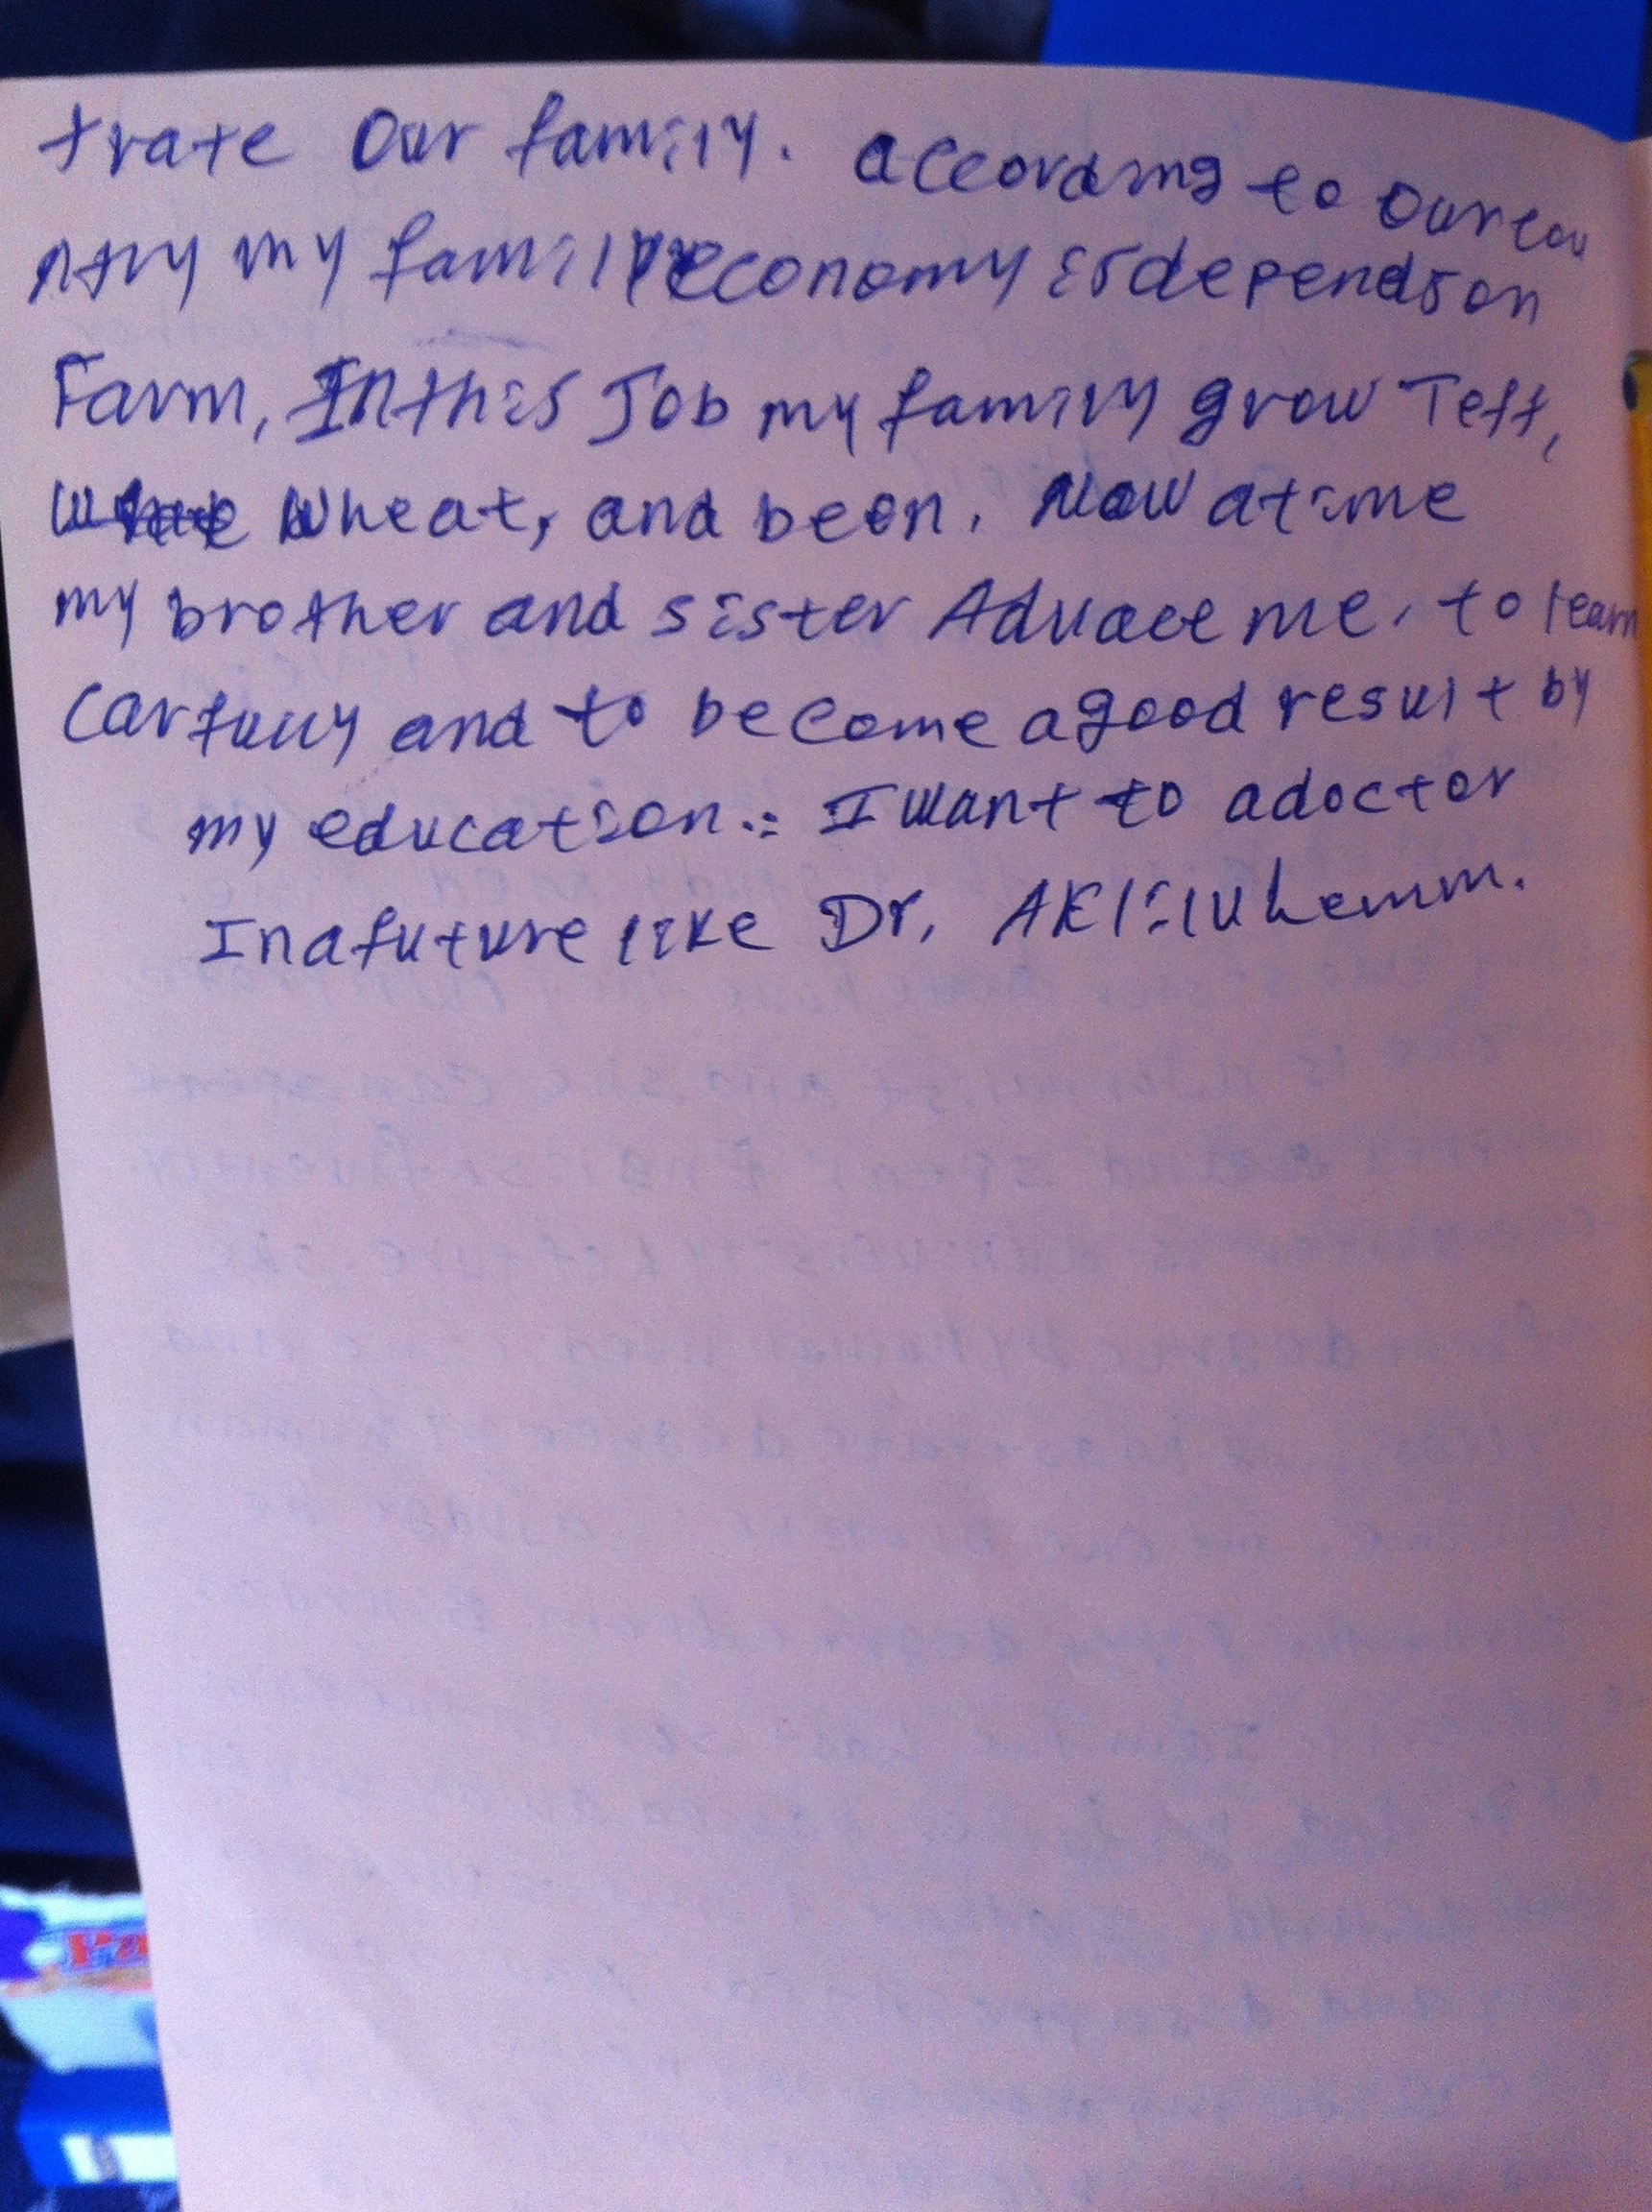 trate Our family. according to our cou
ntry my family economy is depends on
Farm, In this Job my family grow Teff,
Wheat, and been. Now a time
my brother and sister Advace me, to learn
Carfully and to become a good result by
my education.: I want to a doctor
In a future like Dr, AKlilu Lemm.